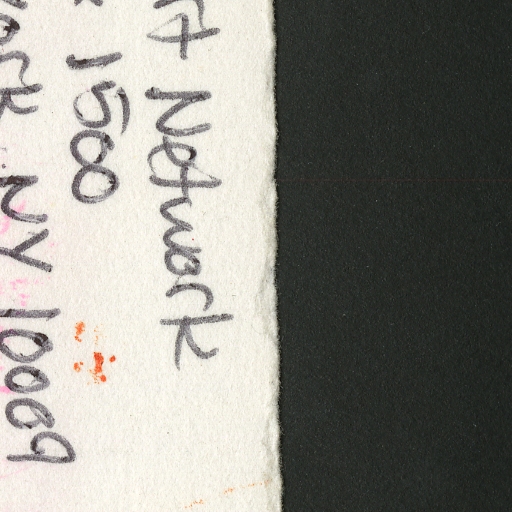 Network
1500
NY 10009